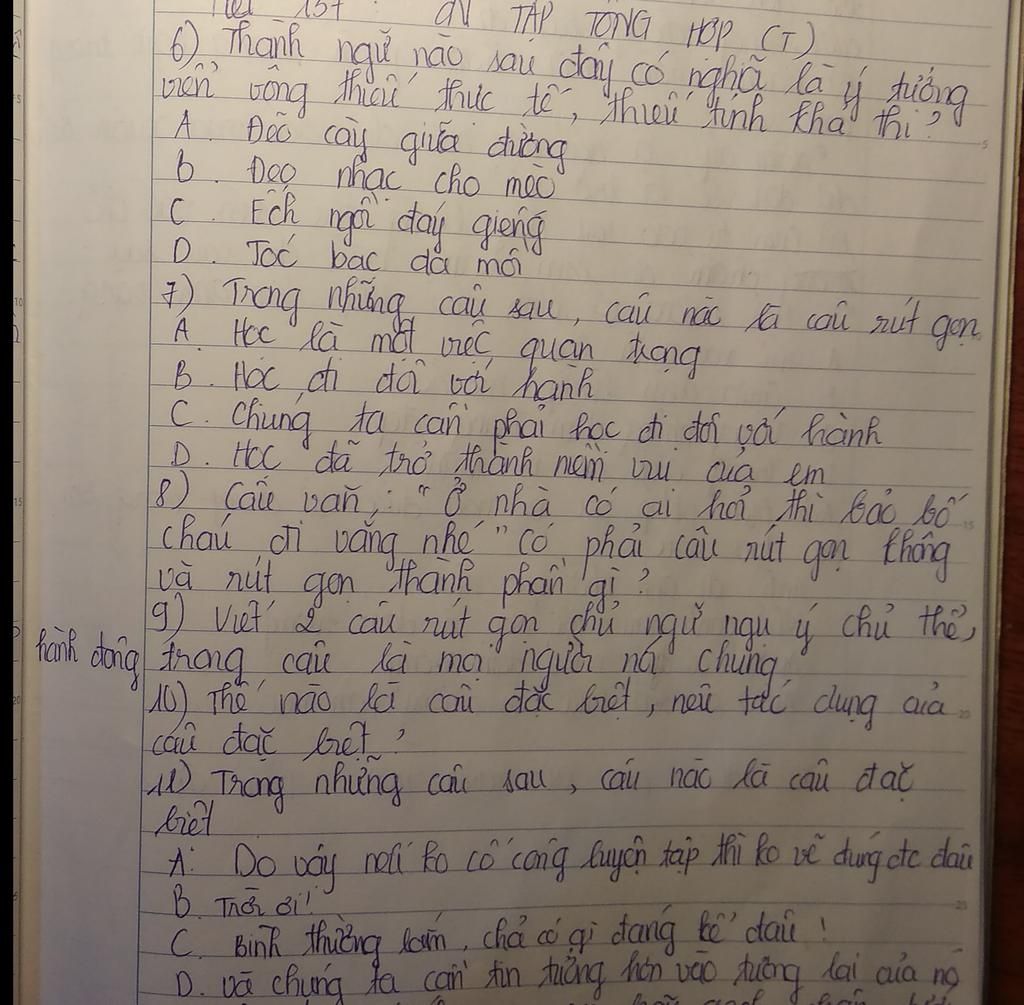 Tiết 137 ÔN TẬP TỔNG HỢP (T)
6) Thành ngữ nào sau đây có nghĩa là ý tưởng
viển vông thiếu thực tế, thiếu tính khả thi?
A. Đẽo cày giữa đường
B. Đeo nhạc cho mèo
C. Ếch ngồi đáy giếng
D. Tóc bạc da mồi
7) Trong những câu sau, câu nào là câu rút gọn
A. Học là một việc quan trọng
B. Học đi đôi với hành
C. Chúng ta cần phải học đi đôi với hành
D. Học đã trở thành niềm vui của em
8) Câu văn: "Ở nhà có ai hỏi thì bảo bố
cháu đi vắng nhé" có phải câu rút gọn không
và rút gọn thành phần gì?
9) Viết 2 câu rút gọn chủ ngữ ngụ ý chủ thể,
hành động trong câu là mọi người nói chung
10) Thế nào là câu đặc biệt, nêu tác dụng của
câu đặc biệt?
11) Trong những câu sau, câu nào là câu đặc
biệt
A. Do vậy nếu ko cố công luyện tập thì ko vẽ đúng đc đâu
B. Trời ơi!
C. Bình thường lắm, chả có gì đáng kể đâu!
D. Và chúng ta cần tin tưởng hơn vào tương lai của nó